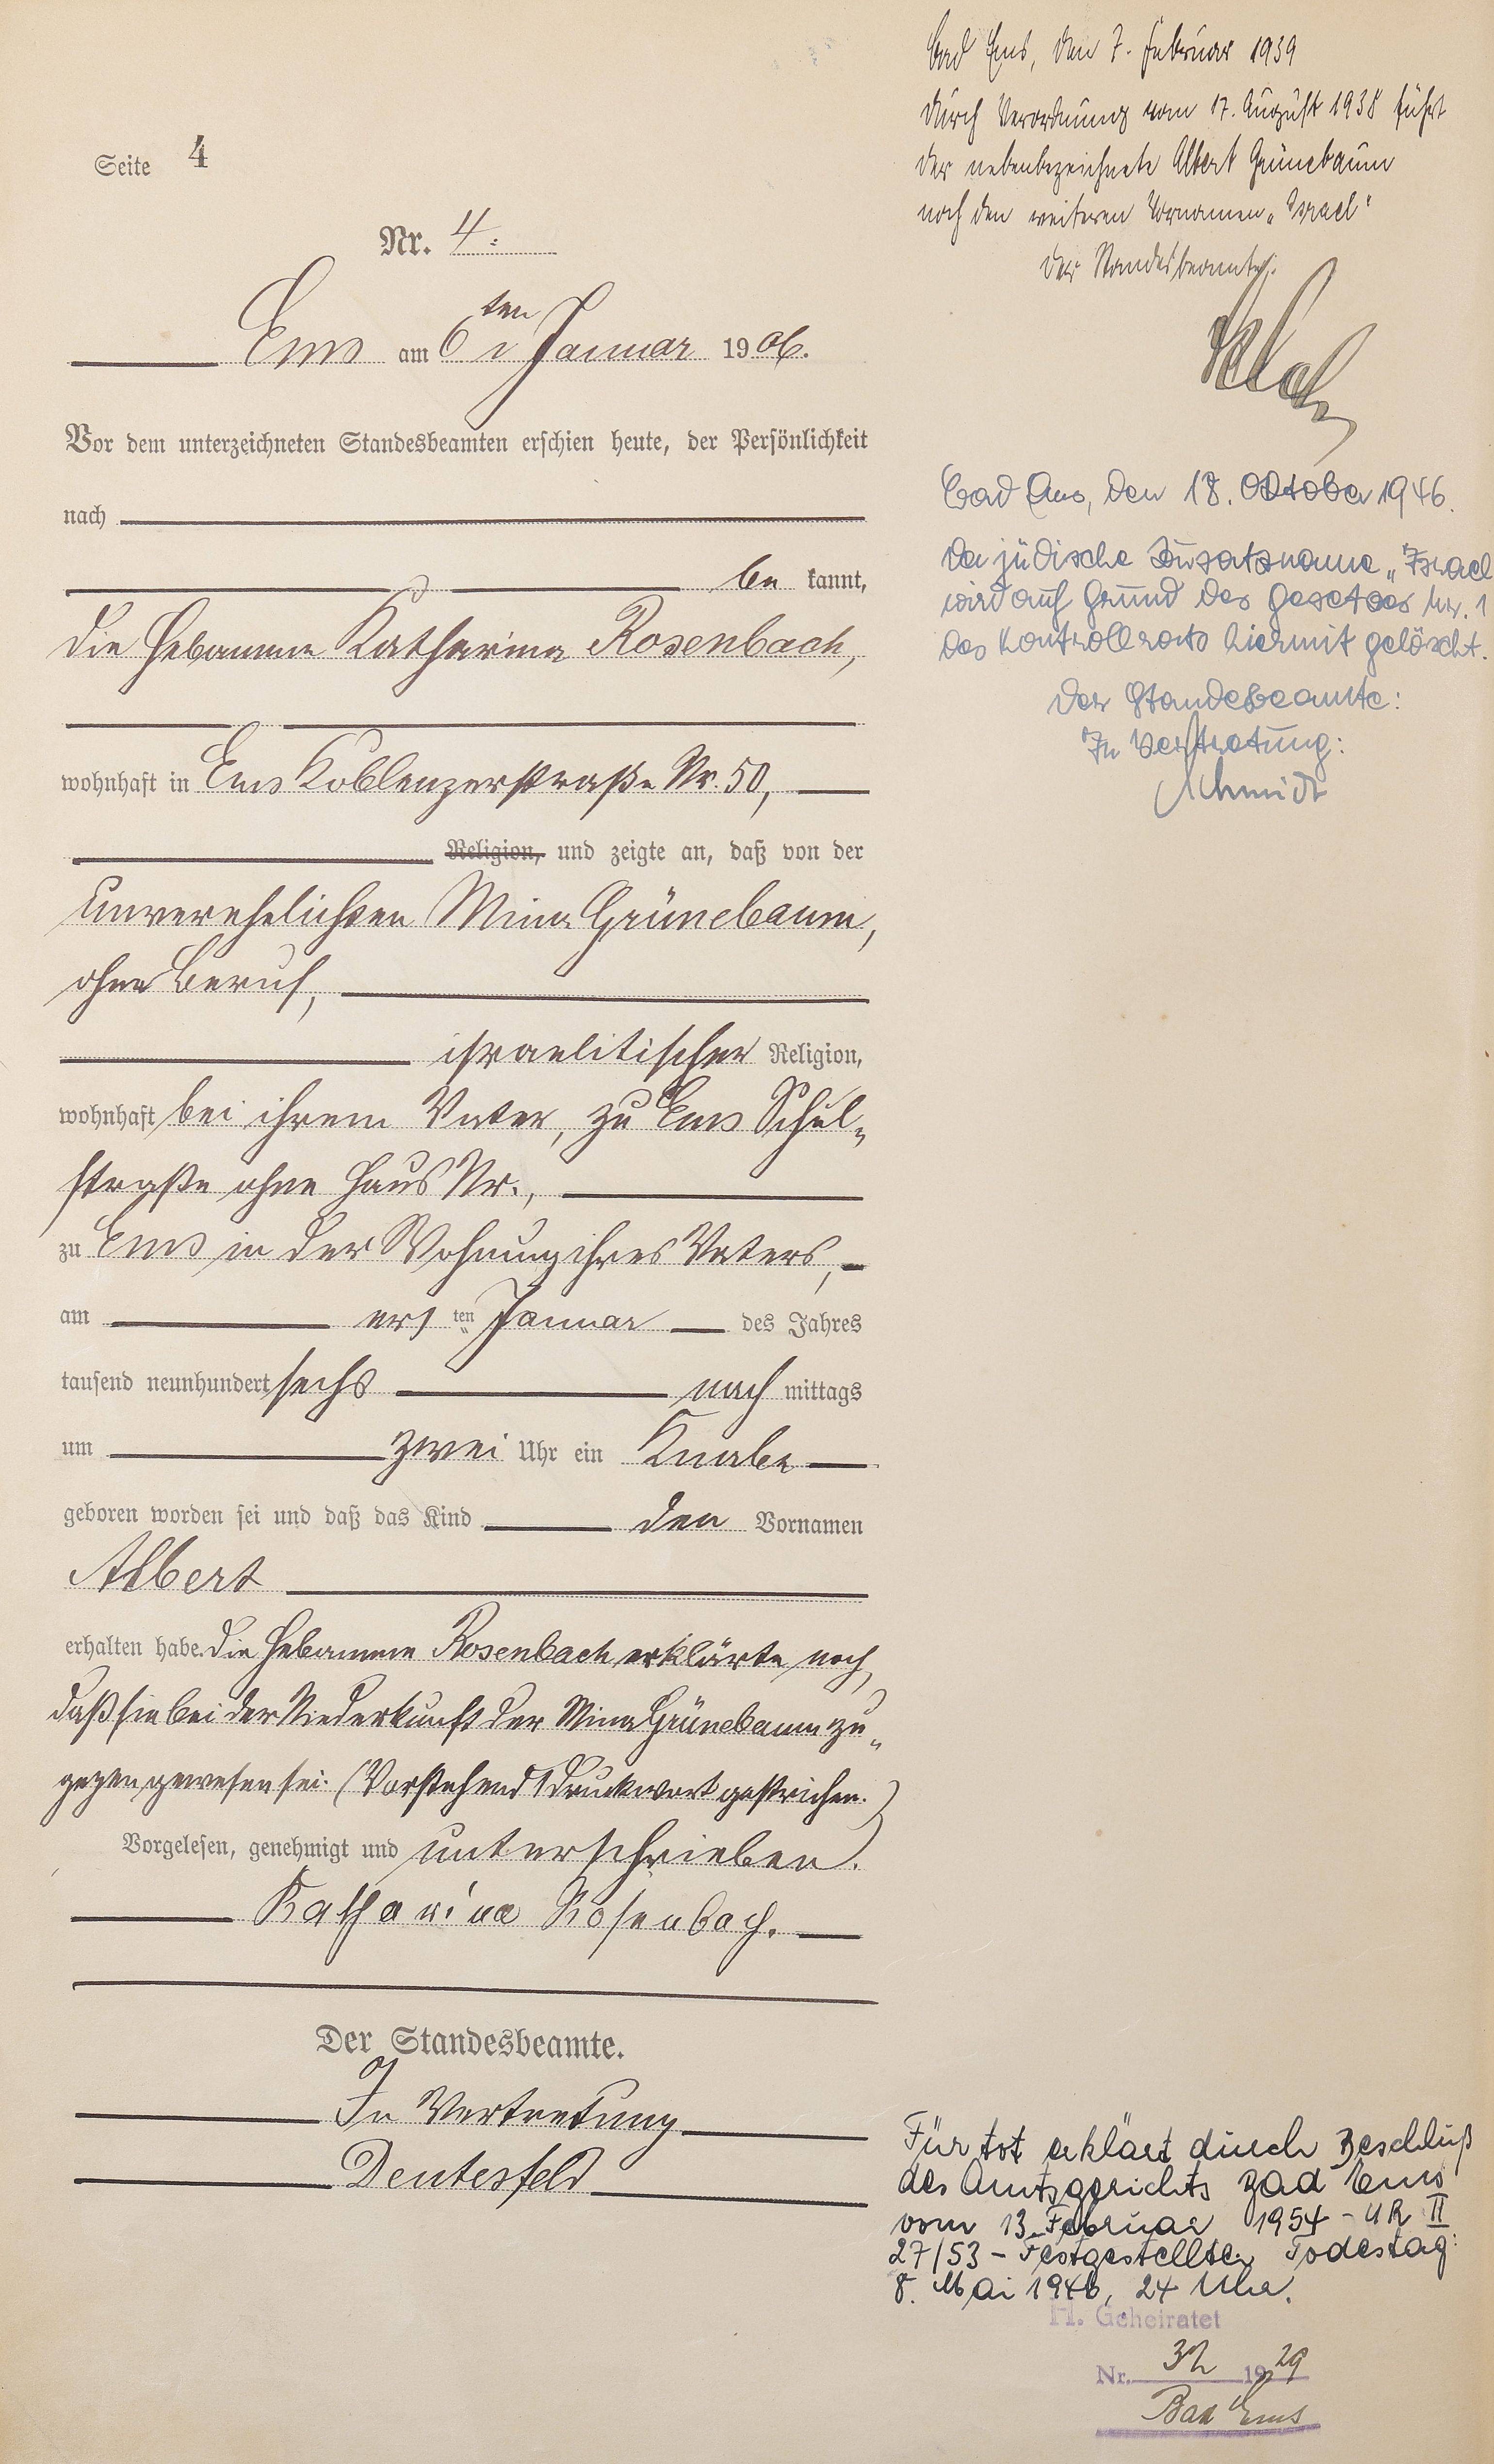 Seite 4
Nr. 4.
Ems am 6ten Januar 1906.
Vor dem unterzeichneten Standesbeamten erschien heute, der Persönlichkeit
nach
be kannt,
die Hebamme Katharina Rosenbach,
wohnhaft in Ems Koblenzerstraße Nr. 50,
Religion, und zeigte an, daß von der
unverehelichten Mina Grünebaum,
ohne Beruf,
israelitischer Religion,
wohnhaft bei ihrem Vater, zu Ems Schul-
straße ohne Haus Nr.,
zu Ems in der Wohnung ihres Vaters,
am ersten Januar des Jahres
tausend neunhundert sechs nachmittags
um zwei Uhr ein Knabe
geboren worden sei und daß das Kind den Vornamen
Albert
erhalten habe. Die Hebamme Rosenbach erklärte noch,
daß sie bei der Niederkunft der Mina Grünebaum zu-
gegen gewesen sei. (Vorstehend 1 Druckwort gestrichen.)
Vorgelesen, genehmigt und unterschrieben.
Katharina Rosenbach.
Der Standesbeamte.
In Vertretung
Deutesfeld
Bad Ems, den 7. Februar 1939
Durch Verordnung vom 17. August 1938 führt
der nebenbezeichnete Albert Grünebaum
noch den weiteren Vornamen „Israel"
Der Standesbeamte:
Bad Ems, den 18. Oktober 1946.
Der jüdische Zusatzname „Israel
wird auf Grund des Gesetzes Nr. 1
des Kontrollrats hiermit gelöscht.
Der Standesbeamte:
In Vertretung:
Schmidt
Für tot erklärt durch Beschluß
des Amtsgerichts Bad Ems
vom 13. Februar 1954 - UR II
27/53 - Festgestellter Todestag:
8. Mai 1945, 24 Uhr.
H. Geheiratet
Nr. 32 1929
Bad Ems